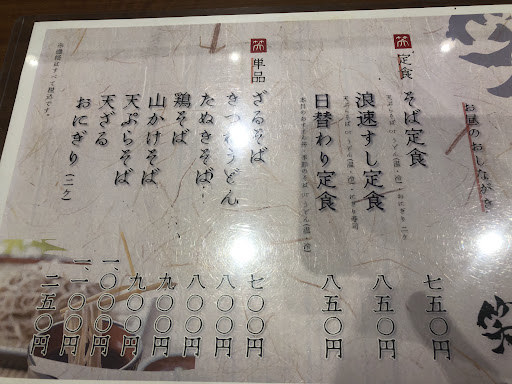 お昼のおしながき
定食
そば定食 七五〇円
浪速すし定食 八五〇円
日替わり定食 八五〇円
単品
ざるそば 七〇〇円
きつねうどん 八〇〇円
たぬきそば 八〇〇円
鶏そば 九〇〇円
山かけそば 九〇〇円
天ぷらそば 一、〇〇〇円
天ざる 一、一〇〇円
おにぎり(二ヶ) 二五〇円
はすべて税込です。